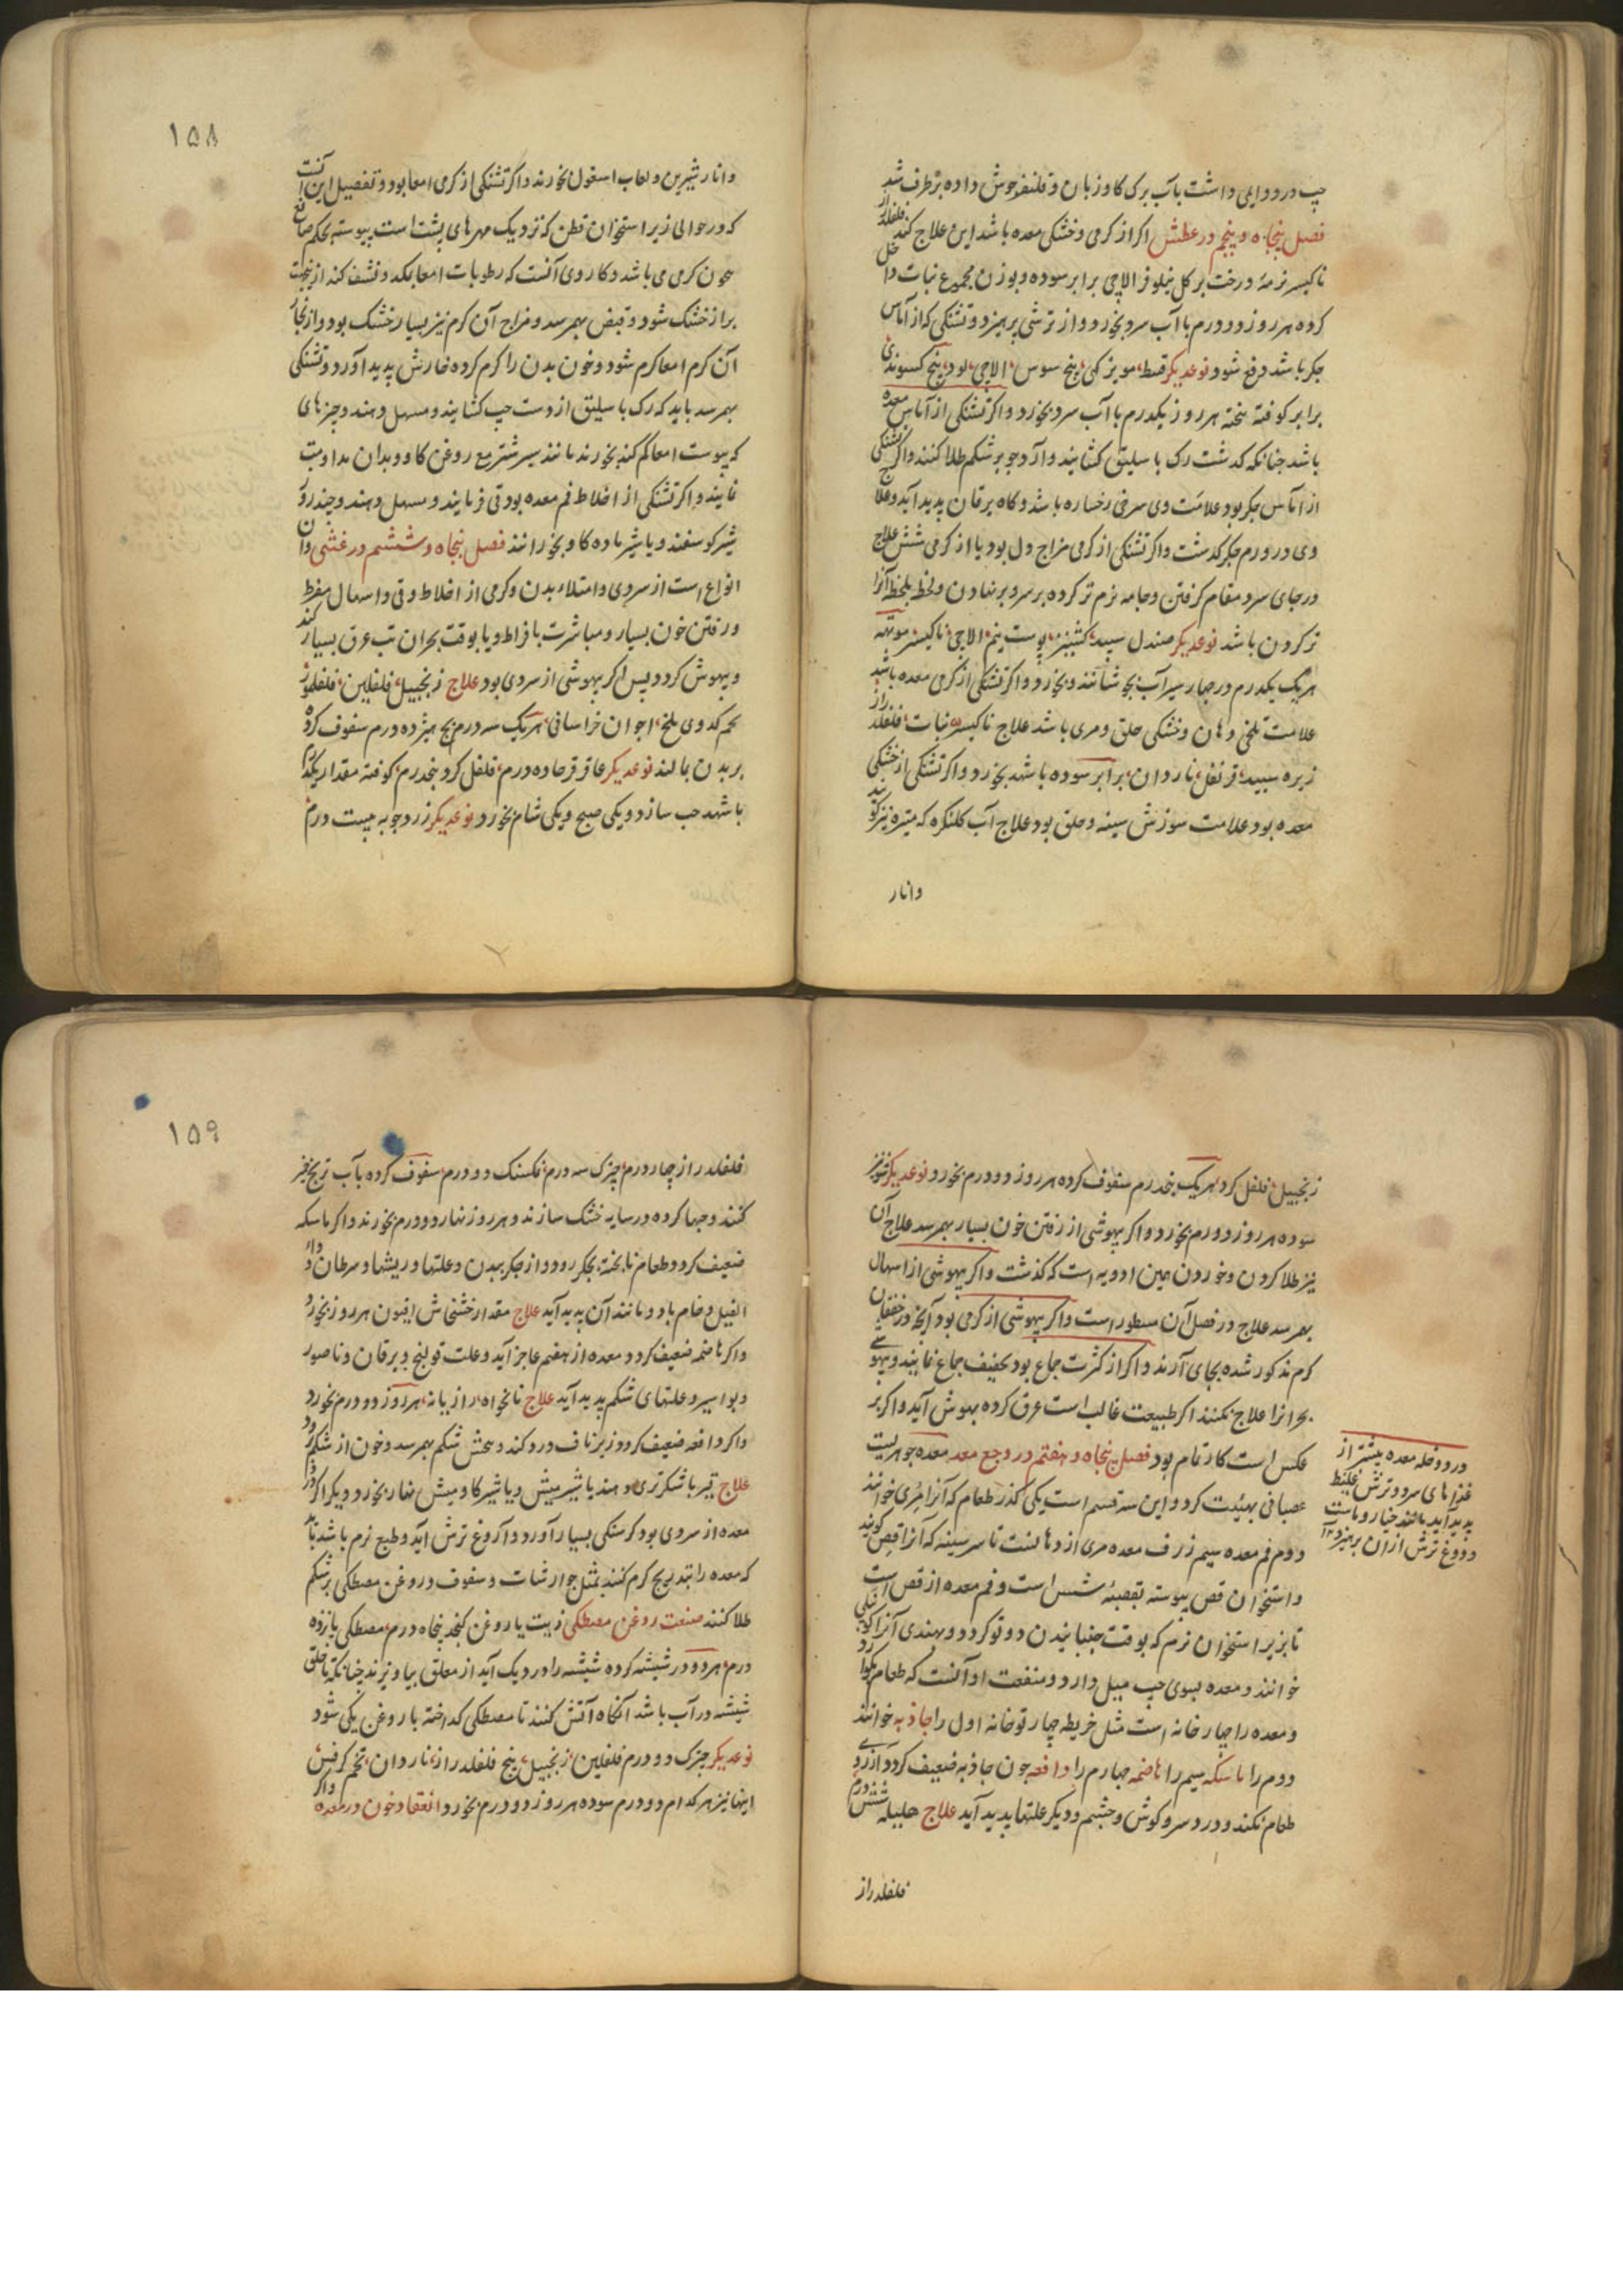 چپ در دوایی داشت بآب برک کاوزبان و قلنفر جوش داده برطرف شد
فصل پنجاه و پنجم در عطش اکر از کرمی و خشکی معده باشد این علاج کند فلفلدراز
ناکیسر نرمهٔ درخت بر کل نیلوفر الاچی برابر سوده و بوزن مجموع نبات داخل
کرده هر روز دو درم باآب سرد بخورد و از ترشی پرهیزد و تشنکی که از آماس
جکر باشد دفع شود نوعدیکر قسط مویز کهی بیخ سوس الاچی لود بیخ کسوندی
برابر کوفته بیخته هر روز یکدرم باآب سرد بخورد و اکر تشنکی از آماس معده
باشد چنانکه کذشت رک باسلیق کشایند و آرد جو بر شکم طلا کنند و اکر تشنکی
از آماس جکر بود علامت وی سرخی رخساره باشد و کاه یرقان پدید آید و علاج
وی در ورم جکر کذشت و اکر تشنکی از کرمی مزاج دل بود یا از کرمی شش علاج
در جای سرد مقام کرفتن و جامه نرم تر کرده بر سر و بر نهادن و لحظ بلحظ آنرا
تر کردن باشد نوعدیکر صندل سپید کشنیز پوست نیم الاچی ناکیسر موتهه
هر یک یکدرم در چهار سیر آب بجوشانند و بخورد و اکر تشنکی از کرمی معده باشد
علامت تلخی دهان و خشکی حلق و مری باشد علاج ناکیسر نبات فلفلدراز
زیره سپید قرنفل ناردان برابر سوده با شهد بخورد و اکر تشنکی از خشکی
معده بود علامت سوزش سینه و حلق بود علاج آب کلنکره که میتره نیز کویند
وانار
۱۵۸
و انار شیرین و لعاب اسغول بخورند و اکر تشنکی از کرمی امعا بود و تفصیل این آنست
که در حوالی زیر استخوان قطن که نزدیک مهرهای پشت است پیوسته بحکم صانع
بیچون کرمی می باشد و کار وی آنست که رطوبات امعا بمکد و نشف کند ازینجهت
براز خشک شود و قبض بهم رسد و مزاج آن کرم نیز بسیار خشک بود و از بخار
آن کرم امعا کرم شود و خون بدن را کرم کرده خارش پدید آورد و تشنکی
بهمرسد باید که رک باسلیق از دست چپ کشایند و مسهل دهند و چیزهای
که یبوست امعا کم کند بخورند مانند سیر شتر مع روغن کاو و بدان مداومت
نمایند و اکر تشنکی از اخلاط فم معده بود قی فرمایند و مسهل دهند و چند روز
شیر کوسفند و یا شیر ماده کاو بخورانند فصل پنجاه و ششم در غشی و آن
انواع است از سردی و امتلاء بدن و کرمی از اخلاط و قی و اسهال مفرط
و رفتن خون بسیار و مباشرت بافراط و یا بوقت بحران تب عرق بسیار کند
و بیهوش کردد پس اکر بیهوشی از سردی بود علاج زنجبیل فلفلین فلفلمور
تخم کدوی تلخ اجوان خراسانی هر یک سه درم بچ هیژده درم سفوف کرده
بر بدن بمالند نوعدیکر عاقرقرحا ده درم فلفل کرد پنجدرم کوفته مقدار یکدرم
با شهد حب سازد و یکی صبح و یکی شام بخورد نوعدیکر زردچوبه بیست درم
زنجبیل فلفل کرد هر یک پنجدرم سفوف کرده هر روز دو درم بخورد نوعدیکر شونیز
سوده هر روز دو درم بخورد و اکر بیهوشی از رفتن خون بسیار بهم رسد علاج آن
نیز طلا کردن و خوردن همین ادویه است که کذشت و اکر بیهوشی از اسهال
بهمرسد علاج در فصل آن مسطور است و اکر بیهوشی از کرمی بود آنچه در خفقان
کرم مذکور شده بجای آرند و اکر از کثرت جماع بود تخفیف جماع نمایند و بیهوشی
بحرانرا علاج نکنند اکر طبیعت غالب است عرق کرده بهوش آید و اکر بر
عکس است کار تمام بود فصل پنجاه و هفتم در وجع معد معده جوهریست
عصبانی بهیئت کرد و این سه قسم است یکی کذر طعام که آنرا مری خوانند
دوم فم معده سیم ژرف معده مری از دهانست تا سر سینه که آنرا قص کویند
و استخوان قص پیوسته بقصبهٔ شش است و فم معده از قص است
تا بزیر استخوان نرم که بوقت جنبانیدن دو تو کردد و بهندی آنرا کوی
خوانند و معده بسوی چپ میل دارد و منفعت او آنست که طعام بکوارد
و معده را چهار خانه است مثل خریطه چهار توخانه اول را جاذبه خوانند
دوم را ماسکه سیم را هاضمه چهارم را دافعه چون جاذبه ضعیف کردد آرزوی
طعام نکند و درد سر و کوش و چشم و دیکر علتها پدید آید علاج هلیله شش درم
فلفلدراز
درد و خله معده بیشتر از
غذاهای سرد و ترش غلیظ
پدید آید مانند خیار و ماست
و دوغ ترش از ان پرهیزد ۱۲
۱۵۹
فلفلدراز چهار درم چترک سه درم نمکسنک دو درم سفوف کرده بآب ترنج خمیر
کنند و حبها کرده در سایه خشک سازند و هر روز نهار دو درم بخورند و اکر ماسکه
ضعیف کردد طعام ناپخته بجکر رود و از جکر ببدن و علتها و ریشها و سرطان و داء
الفیل و خام باد و مانند آن پدید آید علاج مقدار خشخاش افیون هر روز بخورد
و اکر هاضمه ضعیف کردد معده از هضم عاجز آید و علت قولنج و یرقان و ناصور
و بواسیر و علتهای شکم پدید آید علاج نانخواه رازیانه هر روز دو درم بخورد
و اکر دافعه ضعیف کردد زیر ناف درد کند و پیچش شکم بهم رسد و خون از شکم رود
علاج تیر با شکرتری دهند یا شیر میش و یا شیر کاومیش نهار بخورد و دیکر اکر درد
معده از سردی بود کرسنکی بسیار آورد و آروغ ترش آید و طبع نرم باشد باید
که معده را بتدریج کرم کنند بمثل جوارشات و سفوف و روغن مصطکی بر شکم
طلا کنند صنعت روغن مصطکی زیت یا روغن کنجد پنجاه درم مصطکی پانزده
درم هر دو در شیشه کرده شیشه را در دیک آب از معلق بیاویزند چنانکه تا حلق
شیشه در آب باشد آنکاه آتش کنند تا مصطکی کداخته با روغن یکی شود
نوعدیکر چترک دو درم فلفلین زنجبیل بیخ فلفلدراز ناردان تخم کرفس
اینها نیز هر کدام دو درم سوده هر روز دو درم بخورد انعقاد خون در معده و اکر